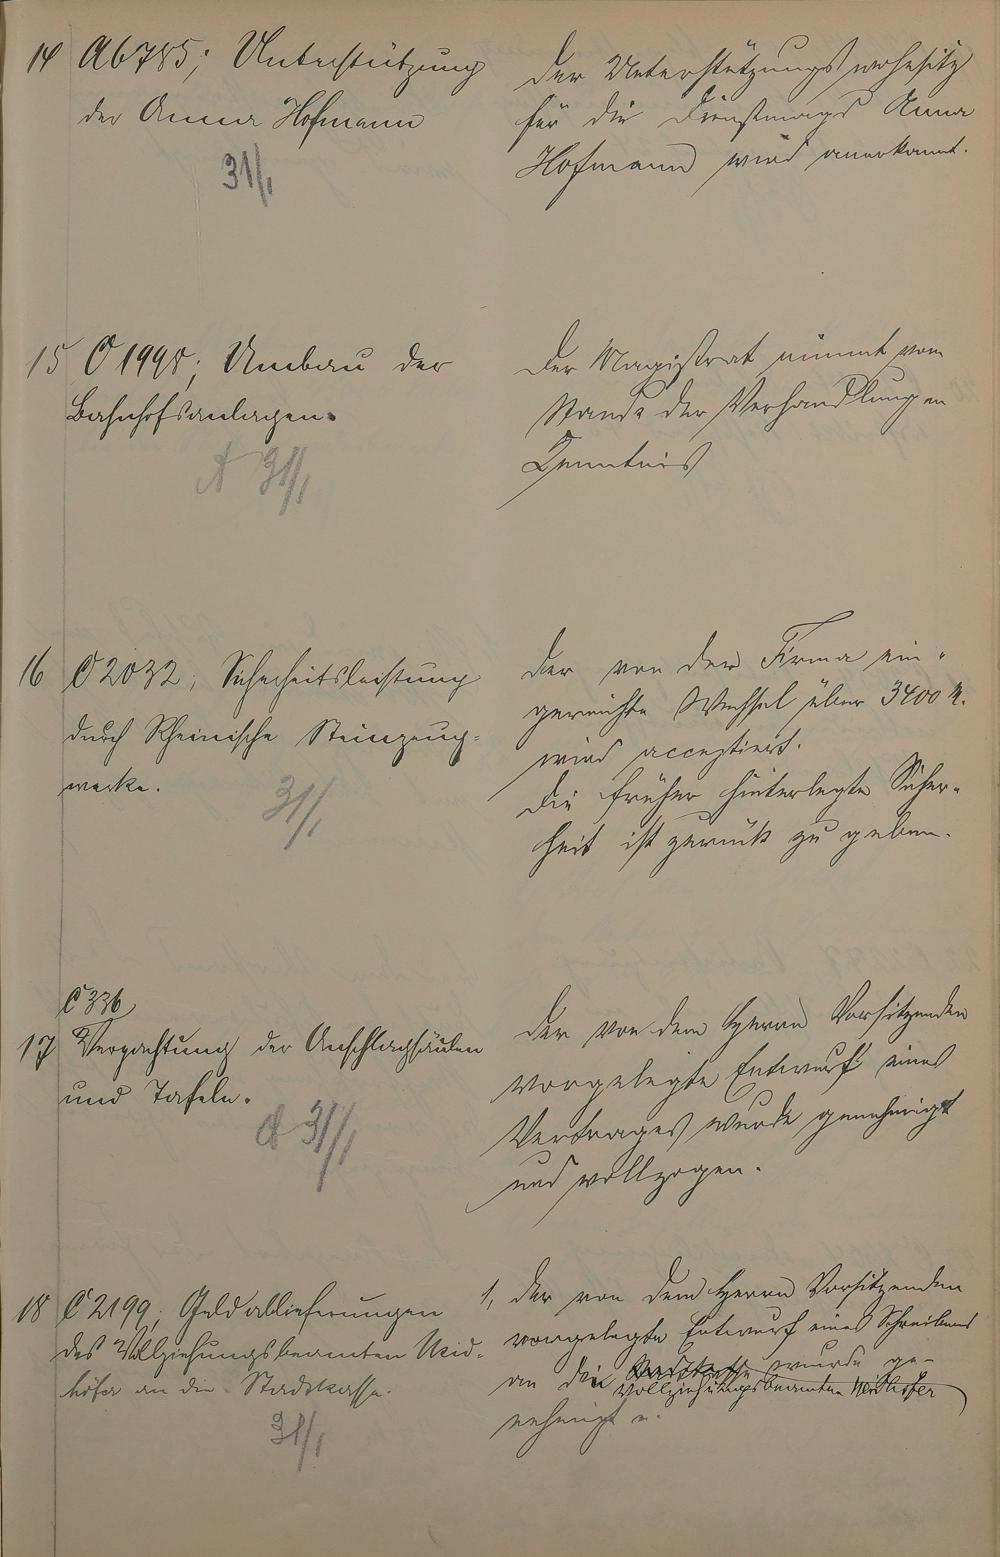 14 Ab785; Unterstützung
der Anna Hofmann
31/1
Der Unterstützungswohnsitz
für die Dienstmagd Anna
Hofmann wird anerkannt.
15 C 1998; Umbau der
Bahnhofsanlagen.
31/1
Der Magistrat nimmt vom
Stande der Verhandlungen
Kenntnis
16 C 2032; Sicherheitsleistung
durch Rheinische Steinzeug-
werke.
31/1
Der von der Firma ein-
gereichte Wechsel über 3400 M.
wird acceptiert.
Die früher hinterlegte Sicher-
heit ist zurück zu geben.
C 336
17 Verpachtung der Anschlagsäulen
und Tafeln.
31/1
Der von dem Herrn Vorsitzenden
vorgelegte Entwurf eines
Vertrages wurde genehmigt
und vollzogen.
18 C 2199; Geldablieferungen
des Vollziehungsbeamten Neid-
höfer an die Stadtkasse.
31/1
1, Der von dem Herrn Vorsitzenden
vorgelegte Entwurf eines Schreibens
an die Stadtkasse wurde ge-
Vollziehungsbeamten Neidhöfer
nehmigt